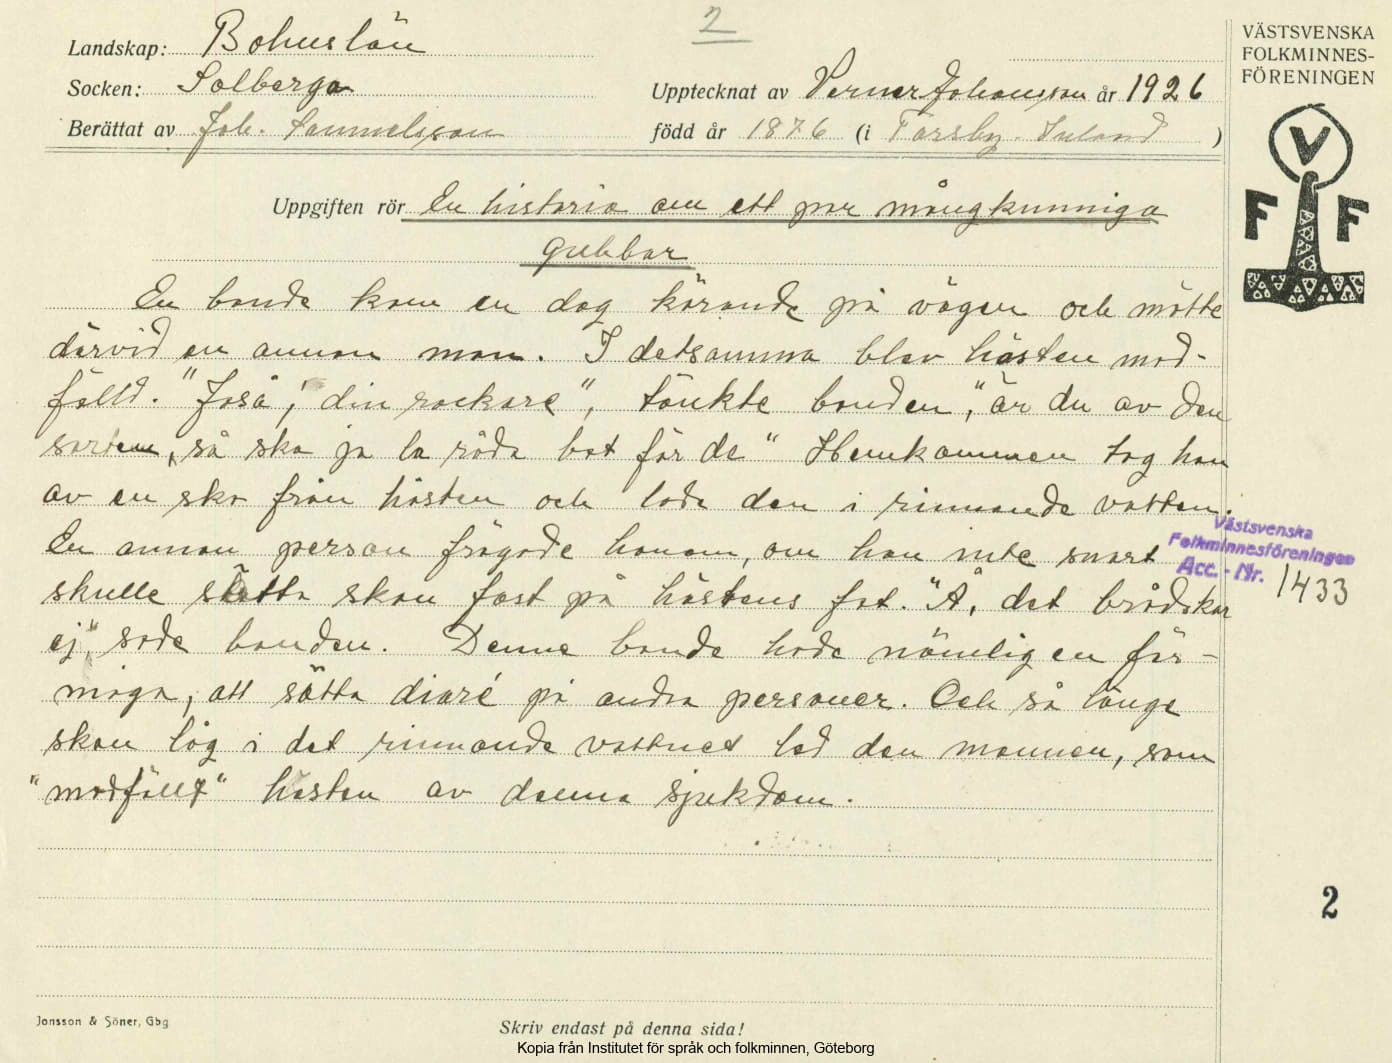 2
Landskap: Bohuslän
Socken: Solberga
Upptecknat av Verner Johansson år 1926
Berättat av Joh. Samuelsson född år 1876 (i Torsby. Inland )
Uppgiften rör En historia om ett par mångkunniga
gubbar
En bonde kom en dag körande på vägen och mötte
därvid en annan man. I detsamma blev hästen mod-
fälld. "Joså, din rackare", tänkte bonden, "är du av den
sorten, så ska ja la råda bot för de" Hemkommen tog han
av en sko från hästen och lade den i rinnande vatten.
En annan person frågade honom, om han inte snart
skulle sätta skon fast på hästens fot. "Å, det brådskar
ej", sade bonden. Denne bonde hade nämligen för-
måga, att sätta diaré på andra personer. Och så länge
skon låg i det rinnande vattnet led den mannen, som
"modfällt" hästen av denna sjukdom.
VÄSTSVENSKA
FOLKMINNES-
FÖRENINGEN
V
F F
Västsvenska
Folkminnesföreningen
Acc. - Nr. 1433
2
Jonsson & Söner, Gbg
Skriv endast på denna sida!
Kopia från Institutet för språk och folkminnen, Göteborg